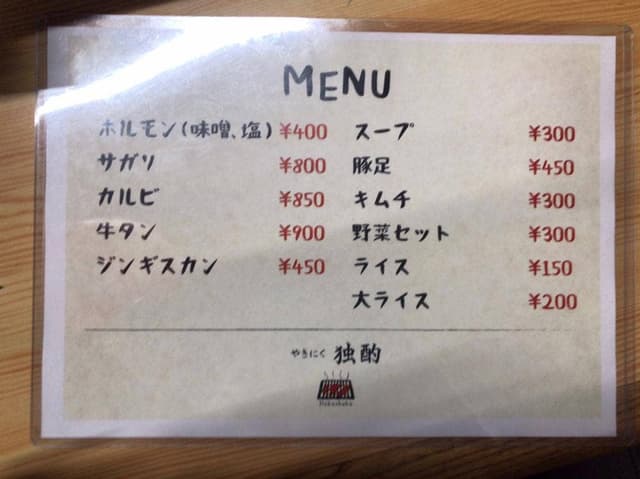 MENU
ホルモン(味噌、塩) ¥400
サガリ ¥800
カルビ ¥850
牛タン ¥900
ジンギスカン ¥450
スープ ¥300
豚足 ¥450
キムチ ¥300
野菜セット ¥300
ライス ¥150
大ライス ¥200
やきにく 独酌
Dokushaku